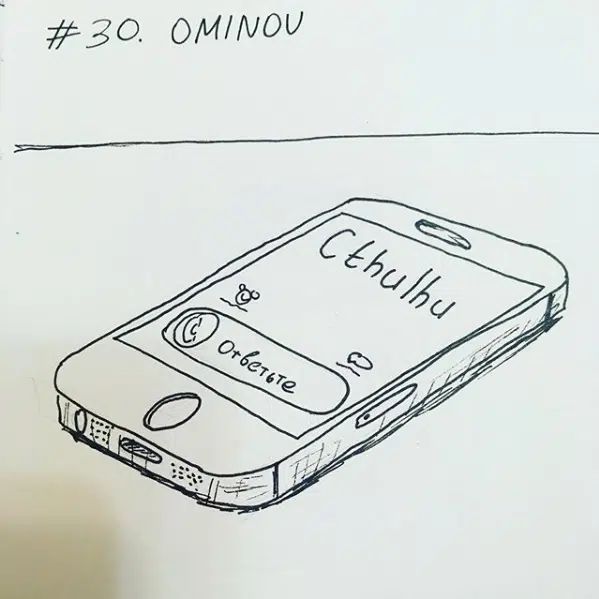 #30. OMINOU
Cthulhu
Ответьте